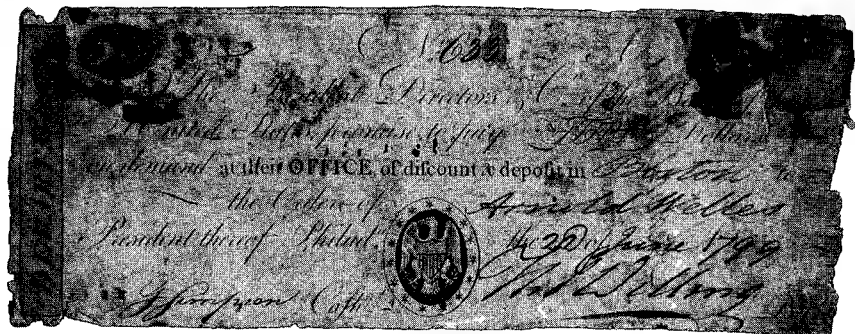 No. 633
The President Directors & Co. of the Bank of
the United States promise to pay Dollars
on demand at their OFFICE of difcount & depofit in Boston to
the Order of Arnold Welles
President thereof Philad. the 22d of June 1799
G Simpson Cafhr. Tho Willing